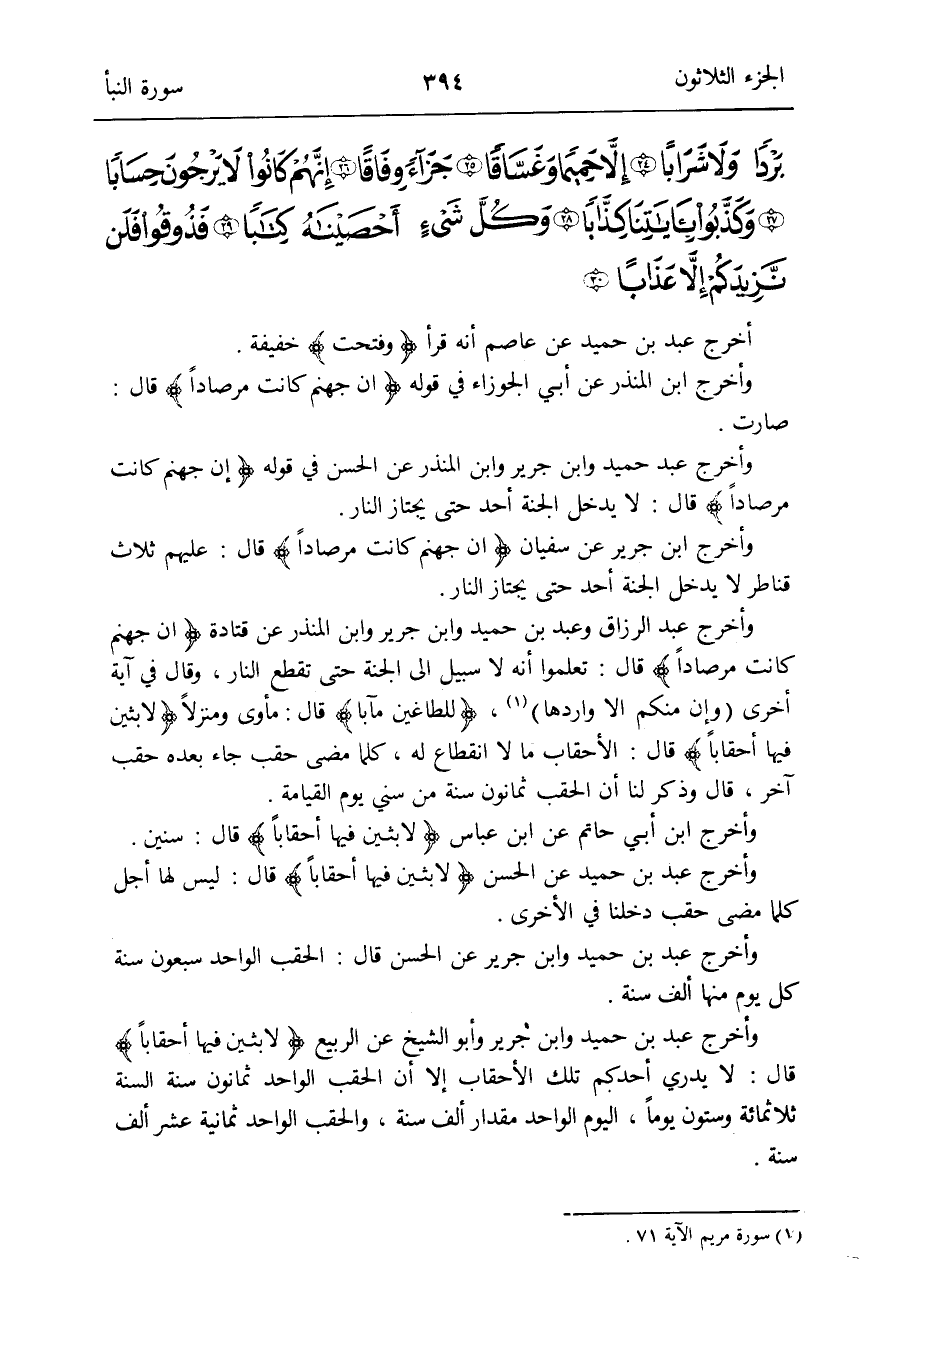 الجزء الثلاثون ٣٩٤ سورة النبأ
بَرْدًا وَلَا شَرَابًا ﴿٢٤﴾ إِلَّا حَمِيمًا وَغَسَّاقًا ﴿٢٥﴾ جَزَآءً وِفَاقًا ﴿٢٦﴾ إِنَّهُمْ كَانُوا۟ لَا يَرْجُونَ حِسَابًا
﴿٢٧﴾ وَكَذَّبُوا۟ بِـَٔايَٰتِنَا كِذَّابًا ﴿٢٨﴾ وَكُلَّ شَىْءٍ أَحْصَيْنَٰهُ كِتَٰبًا ﴿٢٩﴾ فَذُوقُوا۟ فَلَن
نَّزِيدَكُمْ إِلَّا عَذَابًا ﴿٣٠﴾
أخرج عبد بن حميد عن عاصم أنه قرأ ﴿ وفتحت ﴾ خفيفة .
وأخرج ابن المنذر عن أبي الجوزاء في قوله ﴿ ان جهنم كانت مرصاداً ﴾ قال :
صارت .
وأخرج عبد حميد وابن جرير وابن المنذر عن الحسن في قوله ﴿ إن جهنم كانت
مرصاداً ﴾ قال : لا يدخل الجنة أحد حتى يجتاز النار .
وأخرج ابن جرير عن سفيان ﴿ ان جهنم كانت مرصاداً ﴾ قال : عليهم ثلاث
قناطر لا يدخل الجنة أحد حتى يجتاز النار .
وأخرج عبد الرزاق وعبد بن حميد وابن جرير وابن المنذر عن قتادة ﴿ ان جهنم
كانت مرصاداً ﴾ قال : تعلموا أنه لا سبيل الى الجنة حتى تقطع النار ، وقال في آية
أخرى (وإن منكم الا واردها)(١) ، ﴿ للطاغين مآبا ﴾ قال : مأوى ومنزلاً ﴿ لابثين
فيها أحقاباً ﴾ قال : الأحقاب ما لا انقطاع له ، كلما مضى حقب جاء بعده حقب
آخر ، قال وذكر لنا أن الحقب ثمانون سنة من سني يوم القيامة .
وأخرج ابن أبي حاتم عن ابن عباس ﴿ لابثين فيها أحقاباً ﴾ قال : سنين .
وأخرج عبد بن حميد عن الحسن ﴿ لابثين فيها أحقاباً ﴾ قال : ليس لها أجل
كلما مضى حقب دخلنا في الأخرى .
وأخرج عبد بن حميد وابن جرير عن الحسن قال : الحقب الواحد سبعون سنة
كل يوم منها ألف سنة .
وأخرج عبد بن حميد وابن جرير وأبو الشيخ عن الربيع ﴿ لابثين فيها أحقاباً ﴾
قال : لا يدري أحدكم تلك الأحقاب إلا أن الحقب الواحد ثمانون سنة السنة
ثلاثمائة وستون يوماً ، اليوم الواحد مقدار ألف سنة ، والحقب الواحد ثمانية عشر ألف
سنة .
(١) سورة مريم الآية ٧١ .